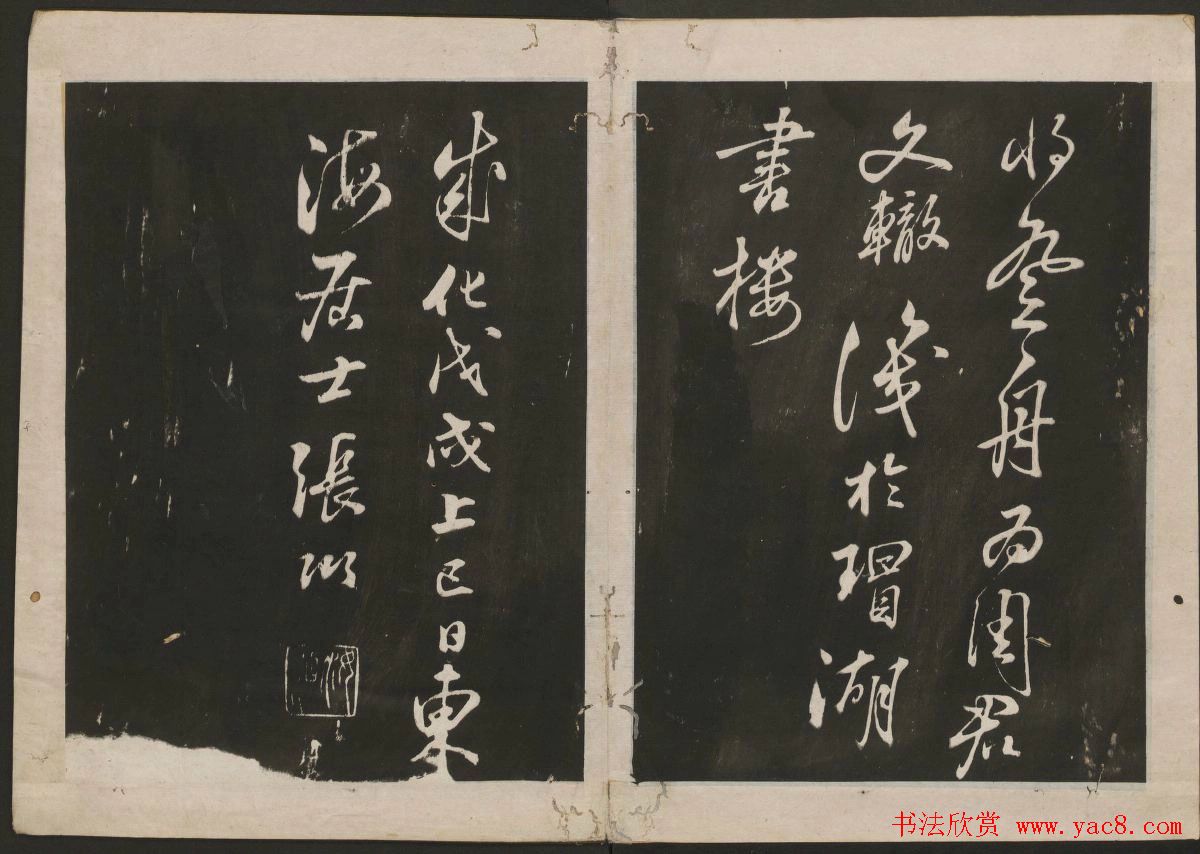 將登舟為周君
文轍餞於瑁湖
書樓
成化戊戌上巳日東
海居士張弼
书法欣赏 www.yac8.com